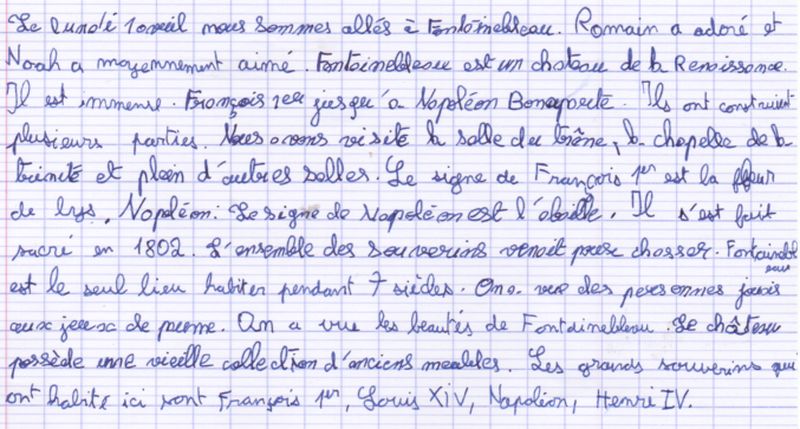 Le lundi 1 avril nous sommes allés à Fontainebleau. Romain a adoré et
Noah a moyennement aimé. Fontainebleau est un chateau de la Renaissance.
Il est immense. François 1er jusqu'a Napoléon Bonaparte. Ils ont construient
plusieurs parties. Nous avons visité la salle du trône, la chapelle de la
trinité et plein d'autres salles. Le signe de François 1er est la fleur
de lys. Napoléon: Le signe de Napoléon est l'abeille. Il s'est fait
sacré en 1802. L'ensemble des souverins venait pour chasser. Fontainebleau
est le seul lieu habiter pendant 7 siècles. On a vue des personnes jouais
aux jeux de pume. On a vue les beautés de Fontainebleau. Le château
possède une vieille collection d'anciens meubles. Les grands souverins qui
ont habité ici sont François 1er, Louis XIV, Napoléon, Henri IV.